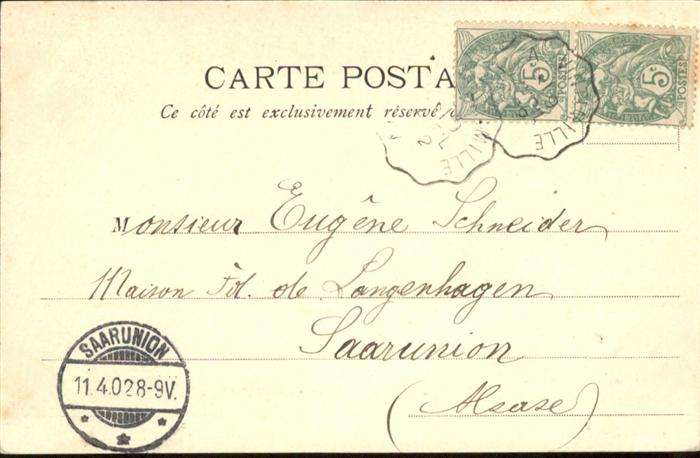 CARTE POSTA
Ce côté est exclusivement réservé
5
POSTES
5
POSTES
MILLE
2
Monsieur Eugêne Schneider
Maison Fd. de Langenhagen
Saarunion
(Alsase)
SAARUNION
11.4.02 8-9V.